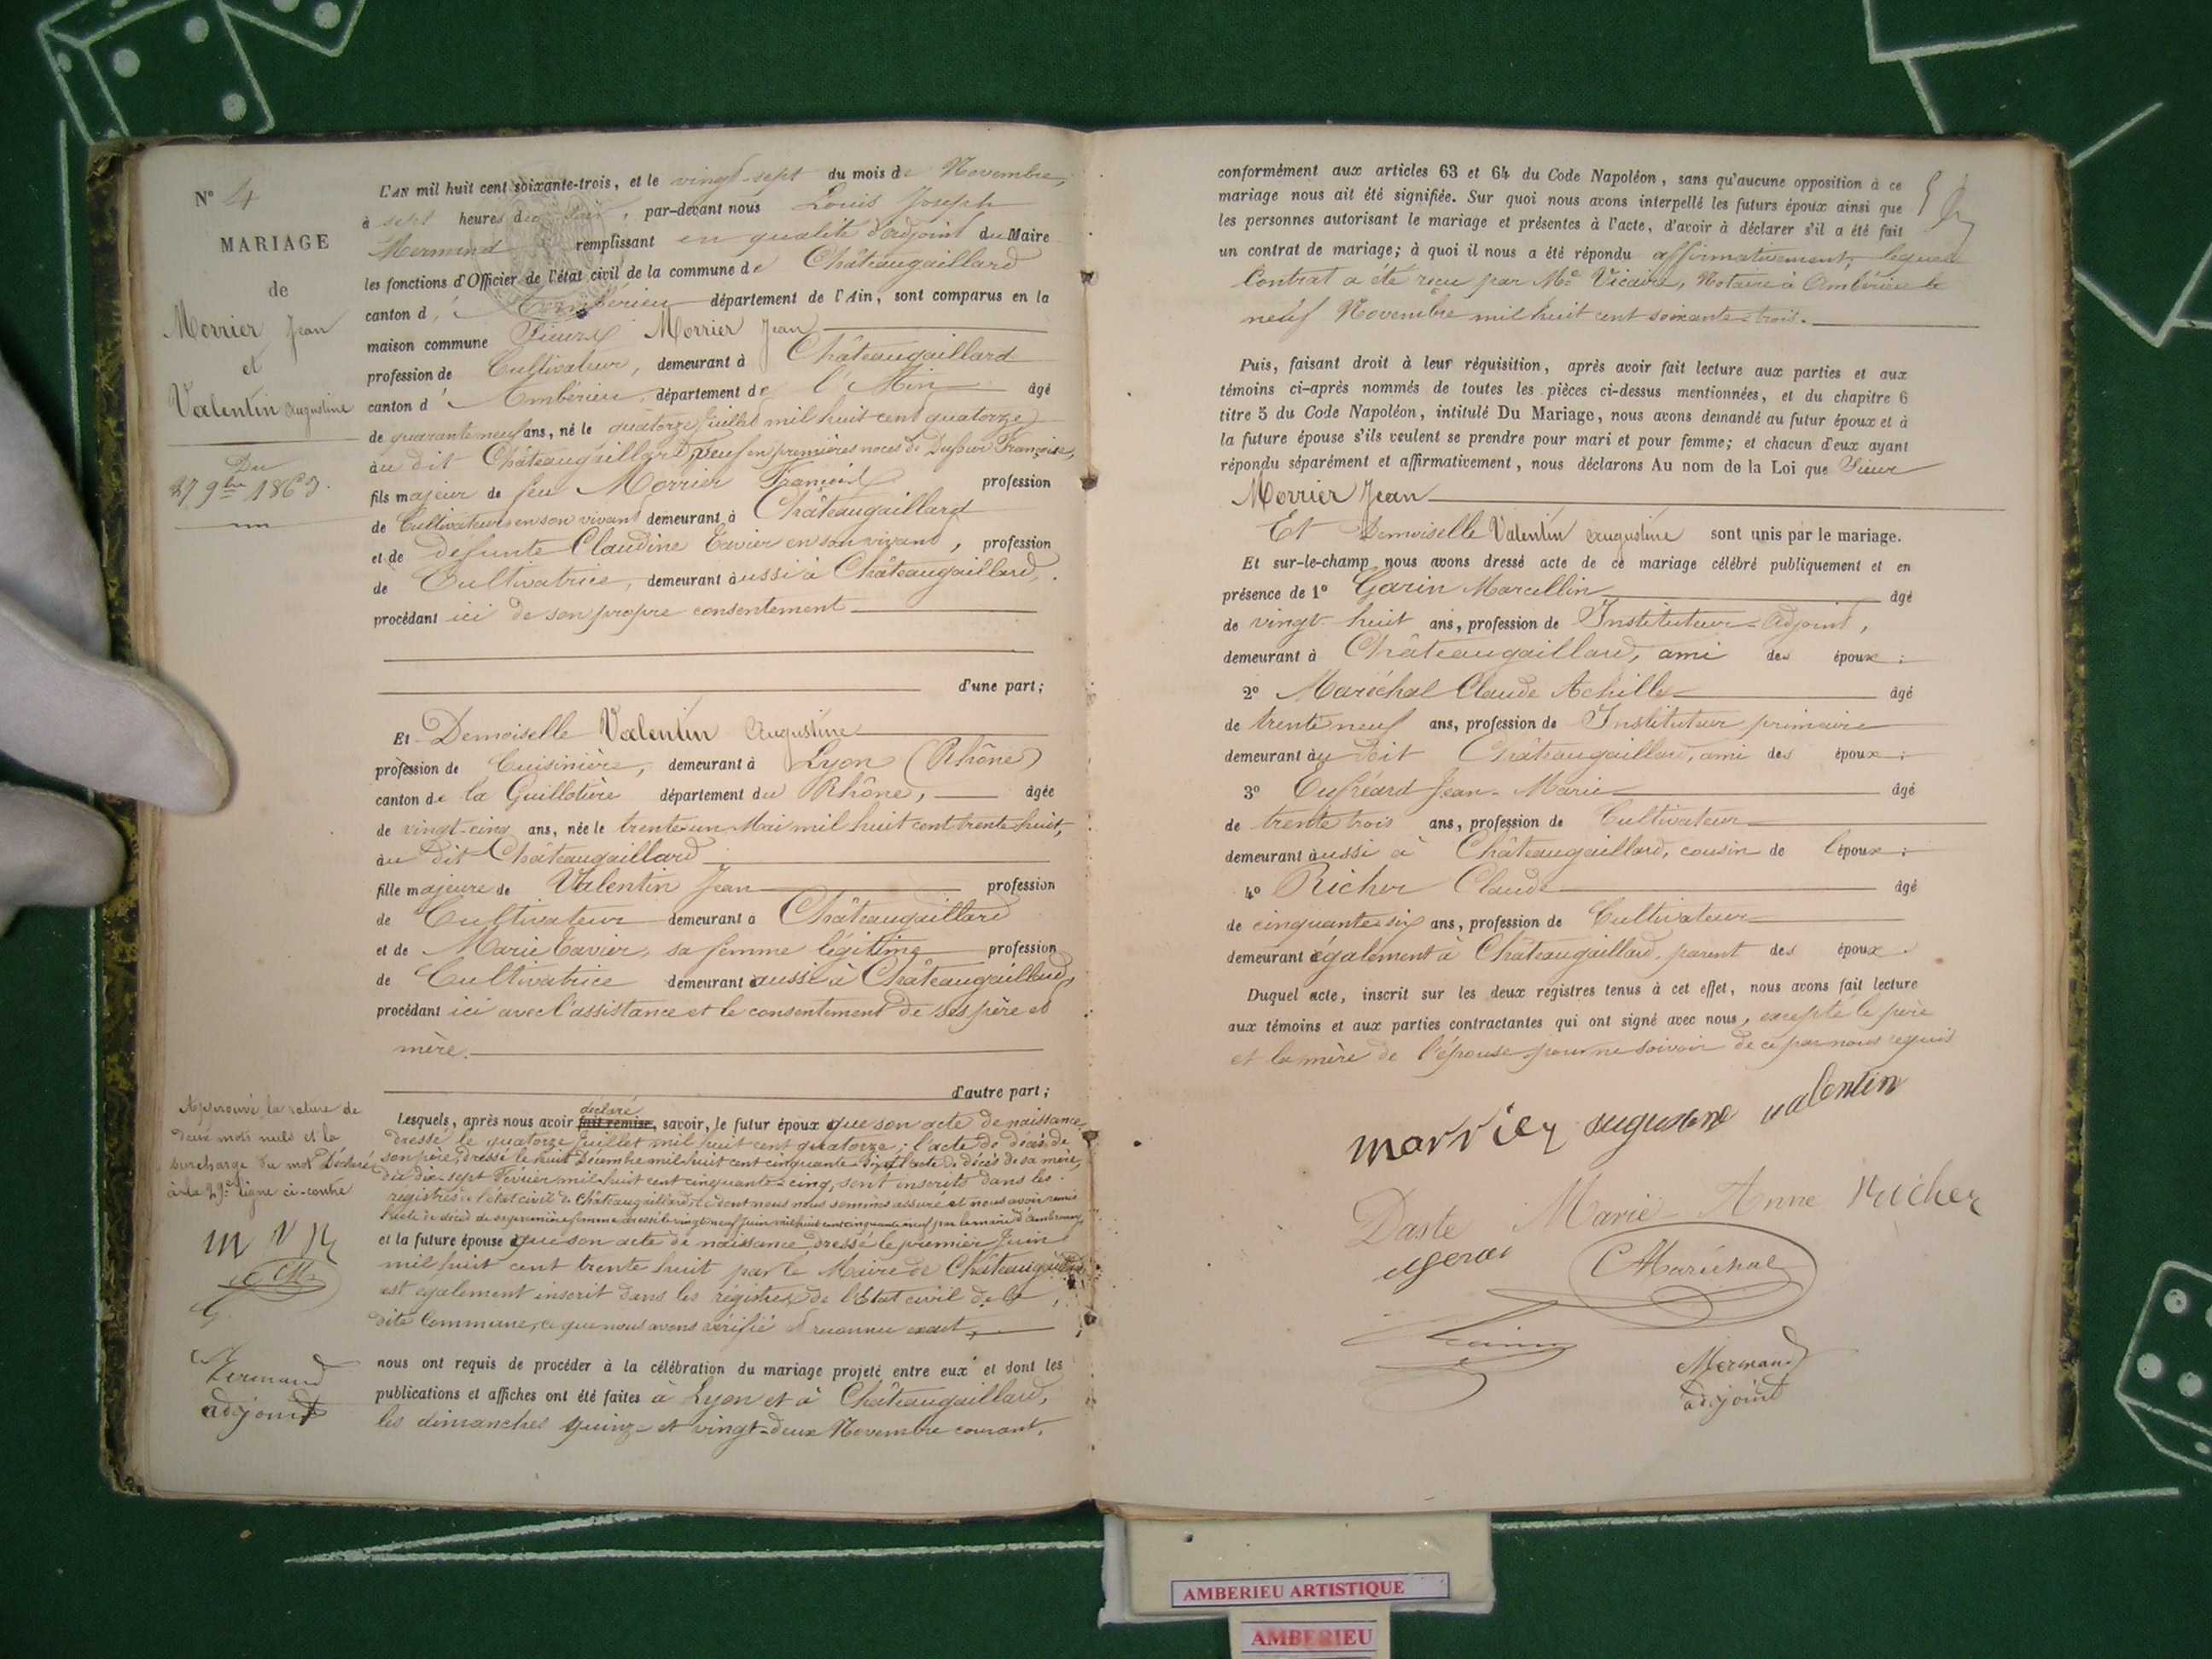 N° 4
MARIAGE
de
Morrier Jean
et
Valentin Augustine
Du
27 9bre 1863.
L'AN mil huit cent soixante-trois, et le vingt-sept du mois de Novembre,
à sept heures du soir, par-devant nous Louis Joseph
Mermand remplissant en qualité d'adjoint du Maire
les fonctions d'Officier de l'état civil de la commune de Châteaugaillard
canton d'Ambérieu département de l'Ain, sont comparus en la
maison commune Sieur Morrier Jean
profession de Cultivateur, demeurant à Châteaugaillard
canton d'Ambérieu, département de l'Ain âgé
de quarante neuf ans, né le quatorze Juillet mil huit cent quatorze
au dit Châteaugaillard, veuf en premières noces de Dufour Françoise,
fils majeur de feu Morrier François profession
de Cultivateur en son vivant demeurant à Châteaugaillard
et de défunte Claudine Cavier en son vivant, profession
de Cultivatrice, demeurant aussi à Châteaugaillard,
procédant ici de son propre consentement
d'une part;
Et Demoiselle Valentin Augustine
profession de Cuisinière, demeurant à Lyon (Rhône)
canton de la Guillotière département du Rhône, âgée
de vingt-cinq ans, née le trente un Mai mil huit cent trente huit,
au dit Châteaugaillard
fille majeure de Valentin Jean profession
de Cultivateur demeurant à Châteaugaillard
et de Marie Cavier, sa femme légitime profession
de Cultivatrice demeurant aussi à Châteaugaillard,
procédant ici avec l'assistance et le consentement de ses père et
mère.
d'autre part;
Approuvé la rature de
deux mots nuls et la
surcharge du mot Déclaré
à la 29e ligne ci-contre
M V R
CM
G
Mermand
adjoint
déclaré
Lesquels, après nous avoir fait remise, savoir, le futur époux que son acte de naissance,
dressé le quatorze Juillet mil huit cent quatorze; l'acte de décès de
son père, dressé le huit Décembre mil huit cent cinquante- et l'acte de décès de sa mère,
du dix-sept Février mil huit cent cinquante-cinq, sont inscrits dans les
registres de l'état civil de Châteaugaillard, ce dont nous nous sommes assuré et nous avoir remis
l'acte de décès de sa première femme dressé le vingt neuf Juin mil huit cent cinquante neuf par le maire d'Ambronay,
et la future épouse que son acte de naissance dressé le premier Juin
mil huit cent trente huit par le Maire de Châteaugaillard
est également inscrit dans les registres de l'Etat civil de la
dite Commune, ce que nous avons vérifié et reconnu exact,
nous ont requis de procéder à la célébration du mariage projeté entre eux et dont les
publications et affiches ont été faites à Lyon et à Châteaugaillard,
les dimanches quinze et vingt-deux Novembre courant,
conformément aux articles 63 et 64 du Code Napoléon, sans qu'aucune opposition à ce
mariage nous ait été signifiée. Sur quoi nous avons interpellé les futurs époux ainsi que
les personnes autorisant le mariage et présentes à l'acte, d'avoir à déclarer s'il a été fait
un contrat de mariage; à quoi il nous a été répondu affirmativement, lequel
Contrat a été reçu par Me Vicaire, Notaire à Ambérieu le
neuf Novembre mil huit cent soixante-trois.
Puis, faisant droit à leur réquisition, après avoir fait lecture aux parties et aux
témoins ci-après nommés de toutes les pièces ci-dessus mentionnées, et du chapitre 6
titre 5 du Code Napoléon, intitulé Du Mariage, nous avons demandé au futur époux et à
la future épouse s'ils veulent se prendre pour mari et pour femme; et chacun d'eux ayant
répondu séparément et affirmativement, nous déclarons Au nom de la Loi que Sieur
Morrier Jean
Et Demoiselle Valentin Augustine sont unis par le mariage.
Et sur-le-champ nous avons dressé acte de ce mariage célébré publiquement et en
présence de 1° Garin Marcellin âgé
de vingt huit ans, profession de Instituteur-Adjoint,
demeurant à Châteaugaillard, ami des époux:
2° Maréchal Claude Achille âgé
de trente neuf ans, profession de Instituteur primaire
demeurant au dit Châteaugaillard, ami des époux:
3° Jean-Marie âgé
de trente trois ans, profession de Cultivateur
demeurant aussi à Châteaugaillard, cousin de l'époux:
4° Richer Claude âgé
de cinquante six ans, profession de Cultivateur
demeurant également à Châteaugaillard, parent des époux.
Duquel acte, inscrit sur les deux registres tenus à cet effet, nous avons fait lecture
aux témoins et aux parties contractantes qui ont signé avec nous, excepté le père
et la mère de l'épouse pour ne savoir de ce par nous requis
morrier augustine valentin
Daste Marie-Anne Richer
CMaréchal
Garin
Mermand
adjoint
AMBERIEU ARTISTIQUE
AMBERIEU